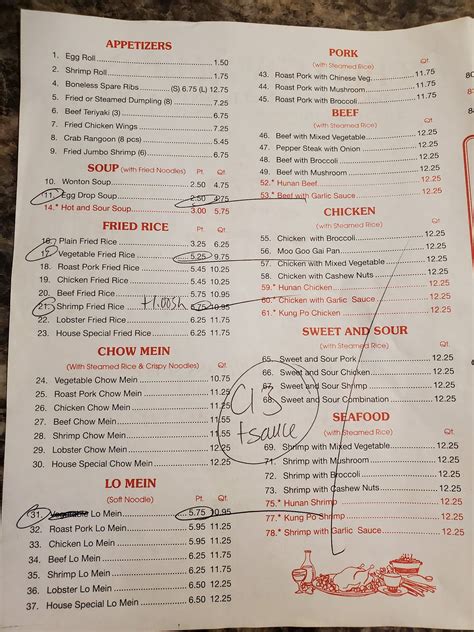 APPETIZERS
1. Egg Roll 1.50
2. Shrimp Roll 1.75
4. Boneless Spare Ribs (S) 6.75 (L) 12.75
5. Fried or Steamed Dumpling (8) 7.25
6. Beef Teriyaki (3) 6.75
7. Fried Chicken Wings 7.25
8. Crab Rangoon (8 pcs) 5.45
9. Fried Jumbo Shrimp (6) 6.75
SOUP (with Fried Noodles) Pt. Qt.
10. Wonton Soup 2.50 4.75
11. Egg Drop Soup 2.50 4.75
14.* Hot and Sour Soup 3.00 5.75
FRIED RICE Pt. Qt.
16. Plain Fried Rice 3.25 6.25
17. Vegetable Fried Rice 5.25 9.75
18. Roast Pork Fried Rice 5.45 10.25
19. Chicken Fried Rice 5.45 10.25
20. Beef Fried Rice 5.75 10.95
21. Shrimp Fried Rice +1.00sh 5.75 10.95
22. Lobster Fried Rice 6.25 11.25
23. House Special Fried Rice 6.25 11.25
CHOW MEIN
(With Steamed Rice & Crispy Noodles) Qt.
24. Vegetable Chow Mein 10.75
25. Roast Pork Chow Mein 11.25
26. Chicken Chow Mein 11.25
27. Beef Chow Mein 11.55
28. Shrimp Chow Mein 11.55
29. Lobster Chow Mein 12.25
30. House Special Chow Mein 12.25
LO MEIN
(Soft Noodle) Pt. Qt.
31. Vegetable Lo Mein 5.75 10.95
32. Roast Pork Lo Mein 5.95 11.25
33. Chicken Lo Mein 5.95 11.25
34. Beef Lo Mein 6.25 11.75
35. Shrimp Lo Mein 6.25 11.75
36. Lobster Lo Mein 6.25 12.25
37. House Special Lo Mein 6.25 12.25
PORK
(with Steamed Rice) Qt.
43. Roast Pork with Chinese Veg. 11.75
44. Roast Pork with Mushroom 11.75
45. Roast Pork with Broccoli 11.75
BEEF
(with Steamed Rice) Qt.
46. Beef with Mixed Vegetable 12.25
47. Pepper Steak with Onion 12.25
48. Beef with Broccoli 12.25
49. Beef with Mushroom 12.25
52.* Hunan Beef 12.25
53.* Beef with Garlic Sauce 12.25
CHICKEN
(with Steamed Rice) Qt.
55. Chicken with Broccoli 12.25
56. Moo Goo Gai Pan 12.25
57. Chicken with Mixed Vegetable 12.25
58. Chicken with Cashew Nuts 12.25
59.* Hunan Chicken 12.25
60.* Chicken with Garlic Sauce 12.25
61.* Kung Po Chicken 12.25
SWEET AND SOUR
(with Steamed Rice) Qt.
65. Sweet and Sour Pork 12.25
66. Sweet and Sour Chicken 12.25
67. Sweet and Sour Shrimp 12.25
68. Sweet and Sour Combination 12.25
+sauce
SEAFOOD
(with Steamed Rice) Qt.
69. Shrimp with Mixed Vegetable 12.25
71. Shrimp with Mushroom 12.25
72. Shrimp with Broccoli 12.25
73. Shrimp with Cashew Nuts 12.25
75.* Hunan Shrimp 12.25
77.* Kung Po Shrimp 12.25
78.* Shrimp with Garlic Sauce 12.25